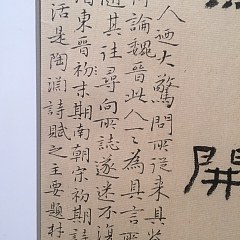 開
人迺大驚問所從来具
論魏晉此人一一為具言所
隨其往尋向所誌遂迷不復
東晉初末期南朝宋初期詩
活是陶渊詩賦之主要題材